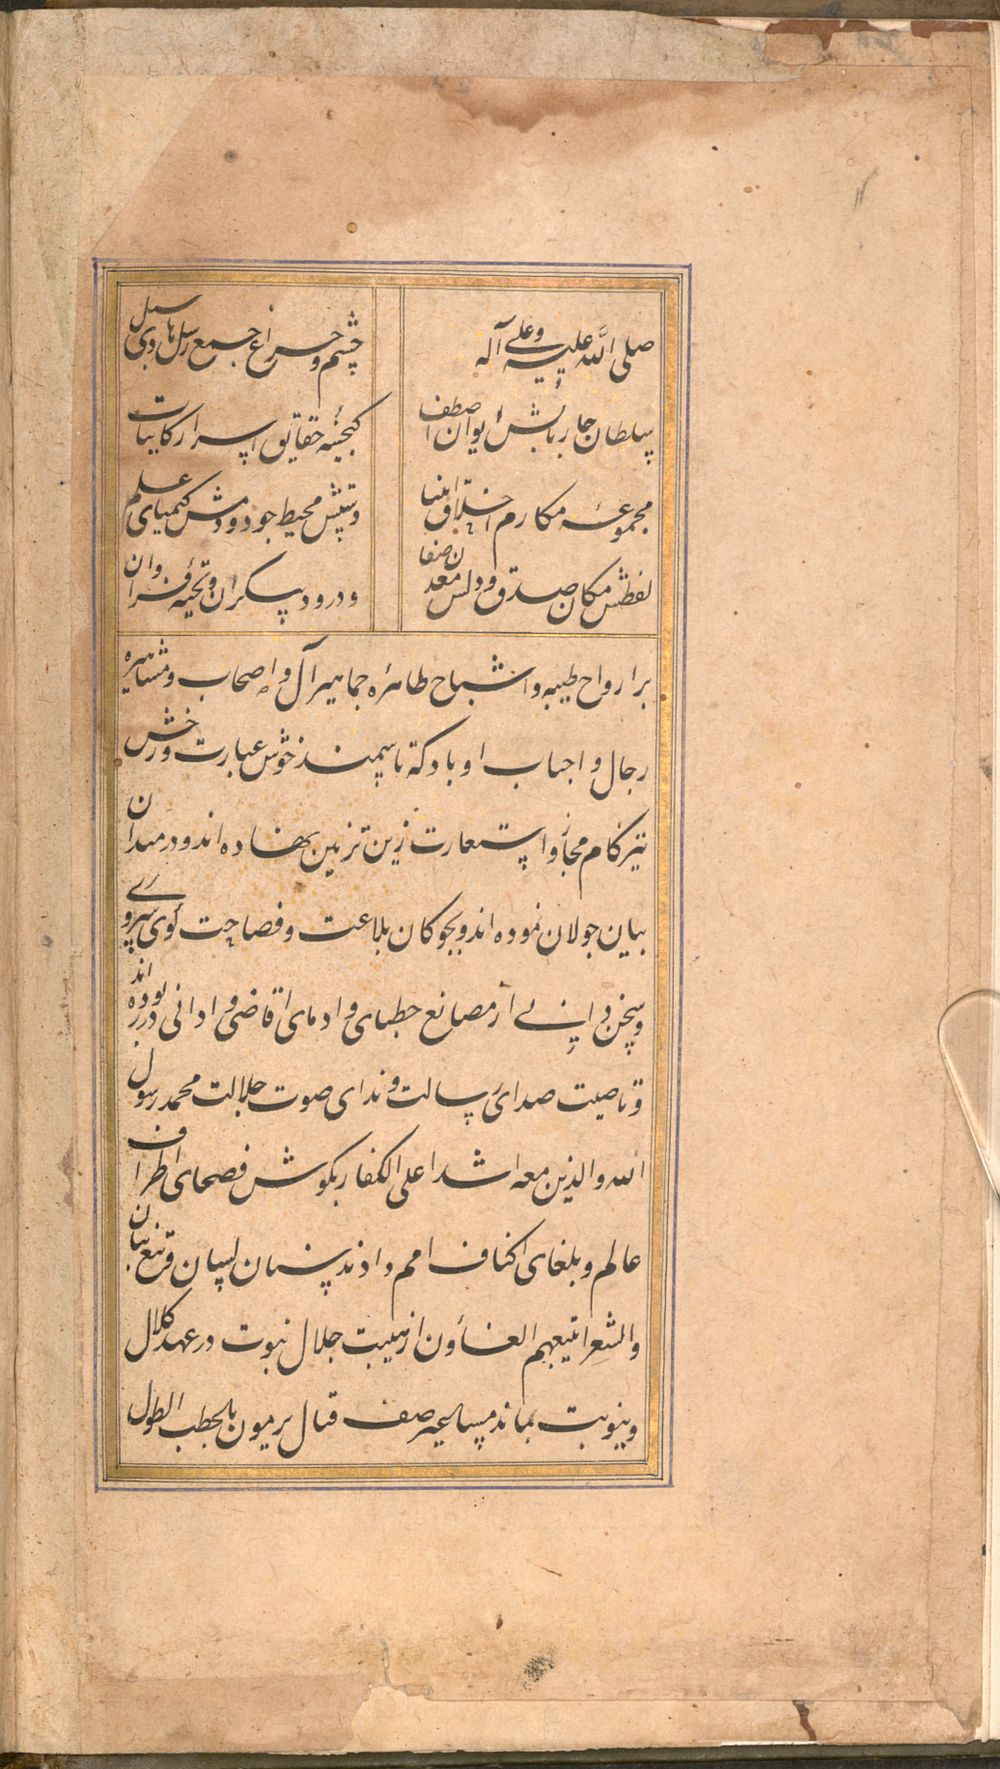 صلی الله علیه وعلی آله چشم و چراغ جمع رسل هادی سبل
سلطان چاربالش ایوان اصطفا گنجینه حقایق اسرار کاینات
مجموعه مکارم اخلاق انبیا دستش محیط جود و دمش کیمیای علم
لفظش مکان صدق و دلش معدن صفا و درود بیکران و تحیه فراوان
بر ارواح طیبه و اشباح طاهره جماهیر آل و اصحاب و مشاهیر
رجال و احباب او باد که تا سمند خوش عبارت و رخش
تیزکام مجاز و استعارت زین تزیین نهاده اند و در میدان
بیان جولان نموده اند و بچوکان بلاغت و فصاحت گوی سروری
و سخن دانی از مصانع خطبای و ادبای اقاصی و ادانی در ربوده اند
و تا صیت صدای رسالت و ندای صوت جلالت محمد رسول
الله والذین معه اشدا علی الکفار بگوش فصحای اطراف
عالم و بلغای اکناف امم دادند سنان لسان بیان
والشعرا یتبعهم الغاون از هیبت جلال نبوت در عهد کلال
و نبوت بماند صف قتال یرمون بالخطب الطول